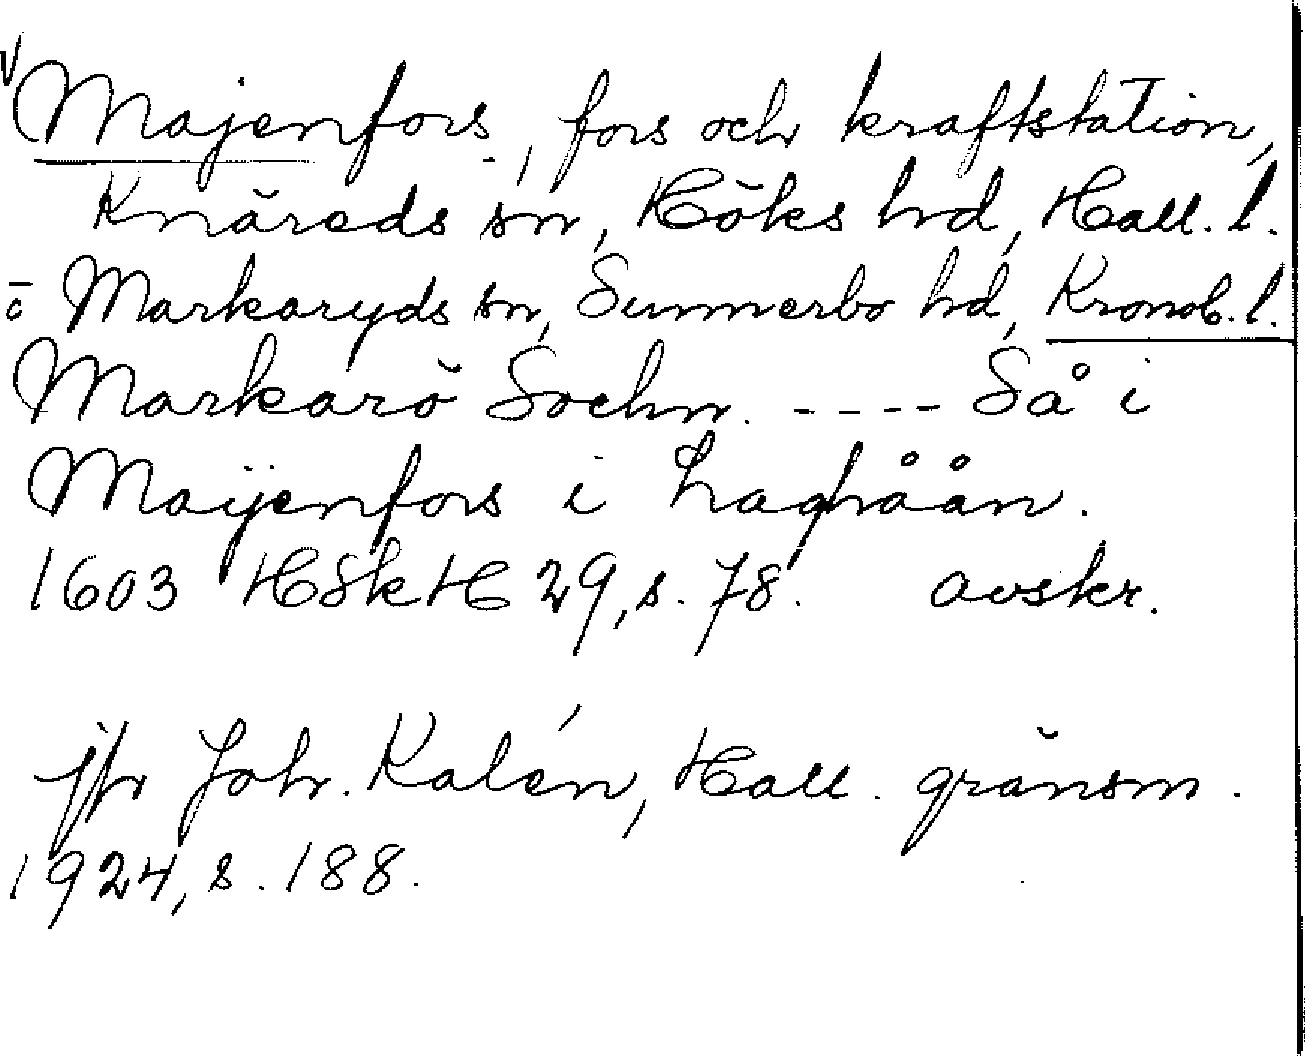 √ Majenfors, fors och kraftstation,
Knäreds sn, Höks hd, Hall. l.
o Markaryds sn, Sunnerbo hd, Kronob. l.
Markarö Sochn. ---- Så i
Maijenfors i Laghåån.
1603 HSkH 29, s. 78. avskr.
jfr Joh. Kalén, Hall. gränsm.
1924, s. 188.